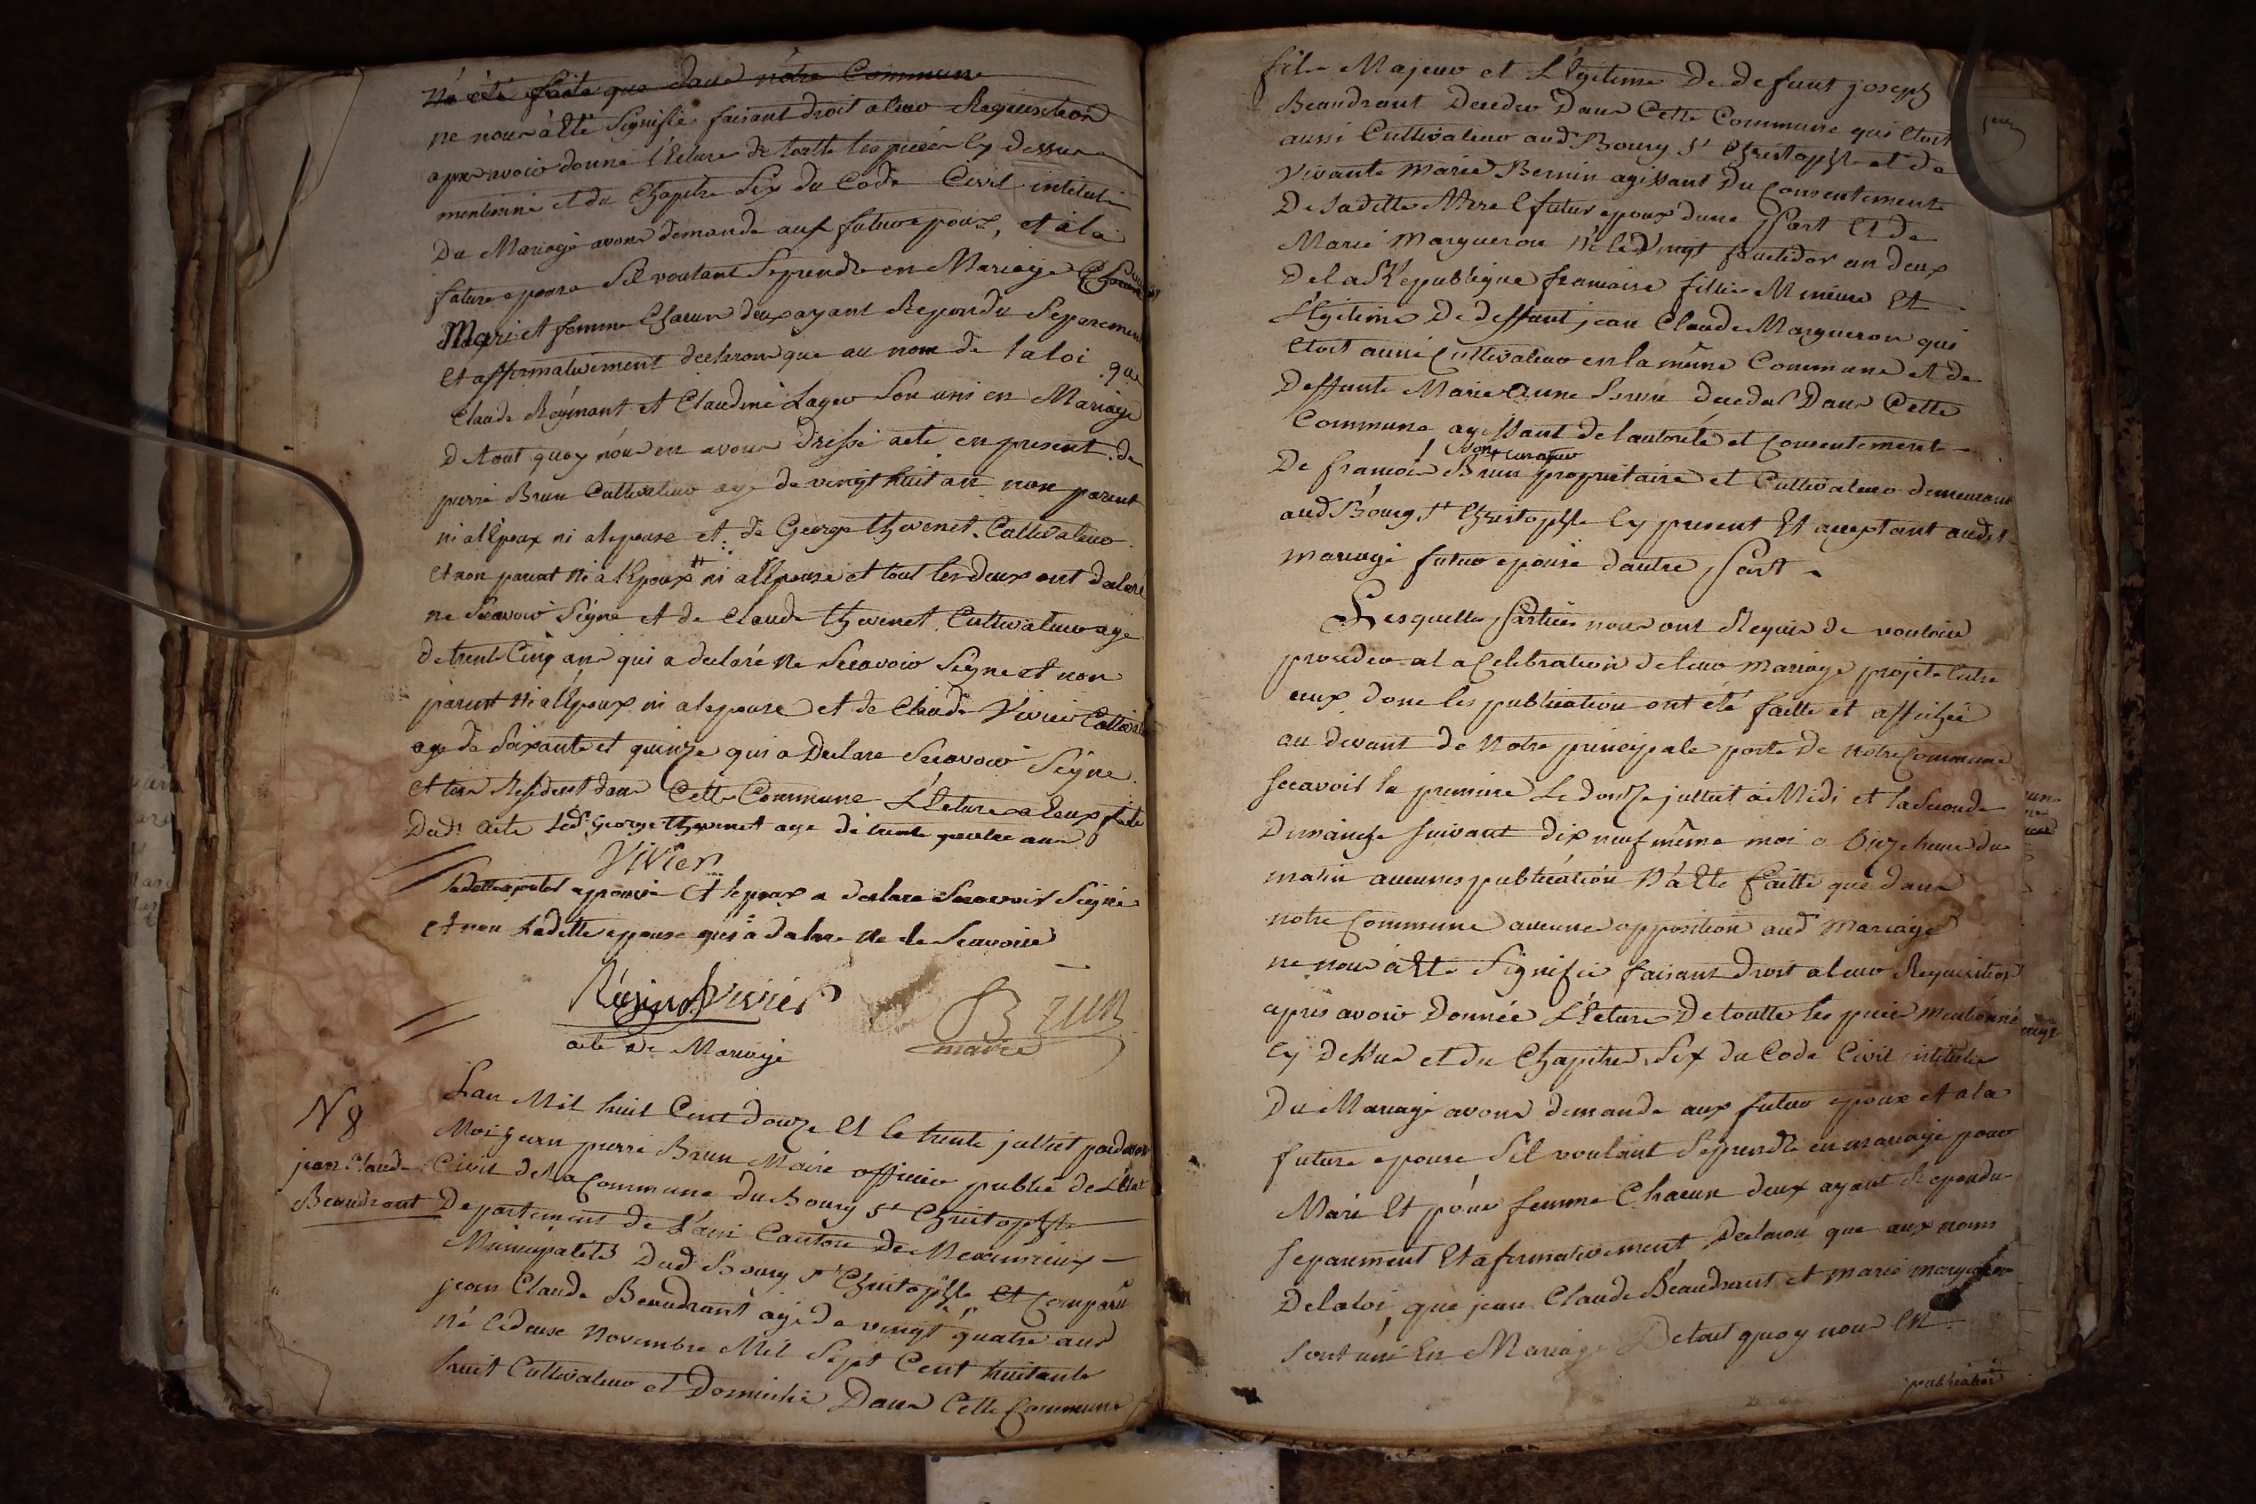 Na été faite que dans nótre Commune
ne nous à Eté Signifié faisant droit a leur Requisition
apres avoir donné l'Ecture de toutte les pieces Cy dessus
mentionné et du Chapitre Six du Code Civil intitulé
Du Mariage avons demande aux futur epoux, et a la
future epouse Sil voulant Seprendre en Mariage
Mari et femme Chacun deux ayant Repondu Separement
Et affirmativement declarons que au nom de la loi que
Claude Reginant et Claudine Layer Son uni en Mariage
De tout quoy nóus en avons dressé acte en present de
pierre Brun Cultivateur age de vingt huit an non parent
ni al Epoux ni a lepouse et de George thevenet Cultivateur
et non parent Ni a l Epoux ni al Epouse et tout les deux ont declaré
ne Scavoir Signé et de Claude thevenet Cultivateur age
de trente Cinq ans qui a declaré ne Scavoir Signe et non
parent Ni al Epoux ni a lepouse et de Claude Vivier
age de Soixante et quinze qui a Declare Scavoir Signe
et tous Resident dans Cette Commune L'Ecture a Eux faite
Dud. acte Led. George thevenet age de trente quatre ans
Vivier
epouse Et lepoux a declare Scavoir Signé
et non Laditte epouse qui a declare Ne le Scavoir
Vivier
Brun
maire
acte de Mariage
N 8
Lan Mil huit Cent douze Et le trente julliet pardevant
Moi pierre Brun Maire officier publié de L'Etat
jean Claude
Civil de la Commune du Bourg St Christophle
Beaudrant
Departement de L'ain Canton de Meximieux
Municipalité Dud Bourg St Christophle Et Comparu
jean Claude Beaudrant agé de vingt quatre ans
Né le deuse Novembre Mil Sept Cent huitante
huit Cultivateur et Domicilié Dans Cette Commune
fils Majeur et L'Egitime De defunt joseph
Beaudrant Decedeé Dans Cette Commune qui Etoit
aussi Cultivateur aud Bourg St Christophle et de
Vivante Marie Bernin agissant Du Consentement
De Saditte Mere futur epoux dune Part Et de
Marie Margueron Né le Vingt fructidor an deux
De la Republique francaise fillie Mineure Et
L'Egitime De deffunt jean Claude Margueron qui
Etoit aussi Cultivateur en la même Commune et de
Deffunte Marie Anne Brun decedé Dans Cette
Commune agissant de l autorité et Consentement
Son Curateur
De francois Brun propriétaire et Cultivateur demeurant
aud Bourg St Christophle Cy present Et acceptant audit
mariage futur epouse dautre Part
Lesquelles Parties nous ont Requis de vouloir
proceder a la Celebration de leur mariage projeté Entre
eux donc les publication ont été faitte et affichée
au devant de Notre principale porte de notre Commune
Scavoir la premiere Le douze julliet a Midi et la Seconde
Dimanche Suivant dix neuf même moi a heure du
matin aucunes publication N'à Eté faitte que dans
notre Commune aucune opposition aud Mariage
ne nous à Eté Signifié faisant droit a leur Requisition
après avoir Donnée L'Ecture De toutte les piece Mentionné
Cy Dessus et du Chapitre Six du Code Civil intitulé
Du Mariage avons demande aux futur epoux et a la
future epouse Sil voulant Seprendre en mariage pour
Mari Et pour femme Chacun deux ayant Repondu
Separement Et afirmativement Declaron que aux noms
De la loi, que jean Claude Beaudrant et Marie
Sont uni En Mariage De tout quoy nous En
publication